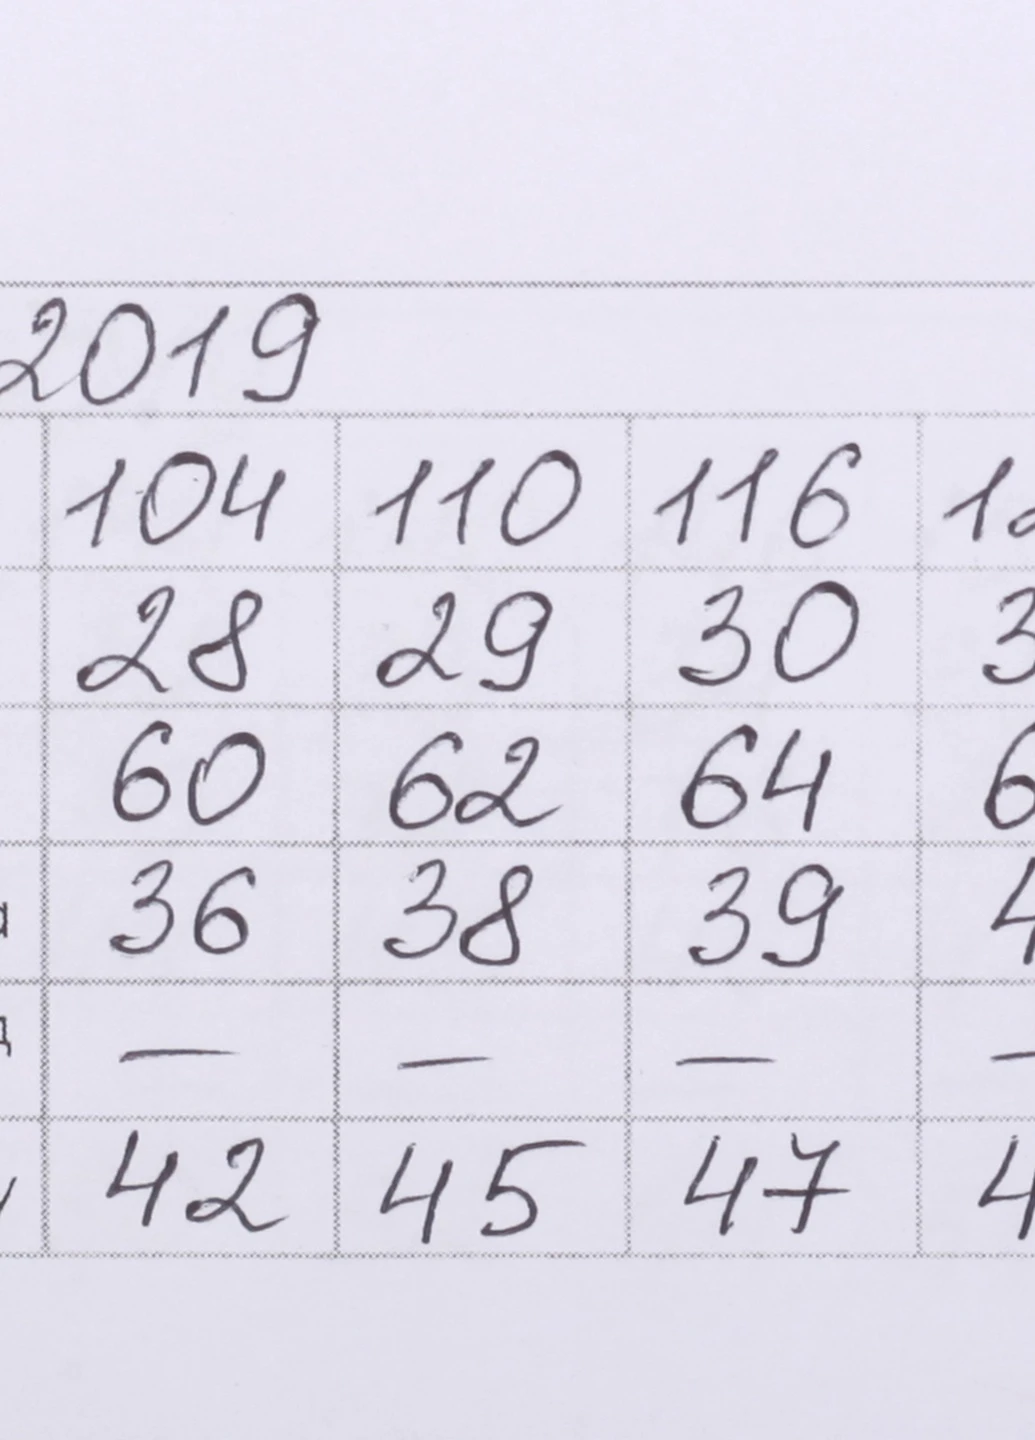 2019
104 110 116
28 29 30
60 62 64
36 38 39
— — — —
42 45 47